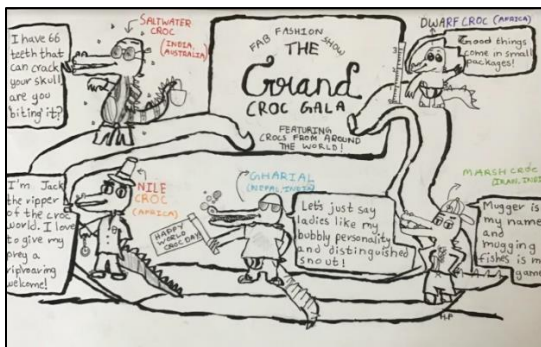 I have 66
teeth that
can crack
your skull
are you
biting it?
SALTWATER
CROC
(INDIA,
AUSTRALIA)
FAB FASHION SHOW
THE
Grand
CROC GALA
FEATURING
CROCS FROM AROUND
THE WORLD!
DWARF CROC (AFRICA)
Good things
come in small
packages!
I'm Jack
the ripper
of the croc
world. I love
to give my
prey a
riproaring
welcome!
NILE
CROC
(AFRICA)
GHARIAL
(NEPAL, INDIA)
HAPPY
WORLD
CROC DAY
Let's just say
ladies like my
bubbly personality
and distinguished
snout!
MARSH CROC
(IRAN, INDI
Mugger is
my name
and
mugging
fishes is m
game